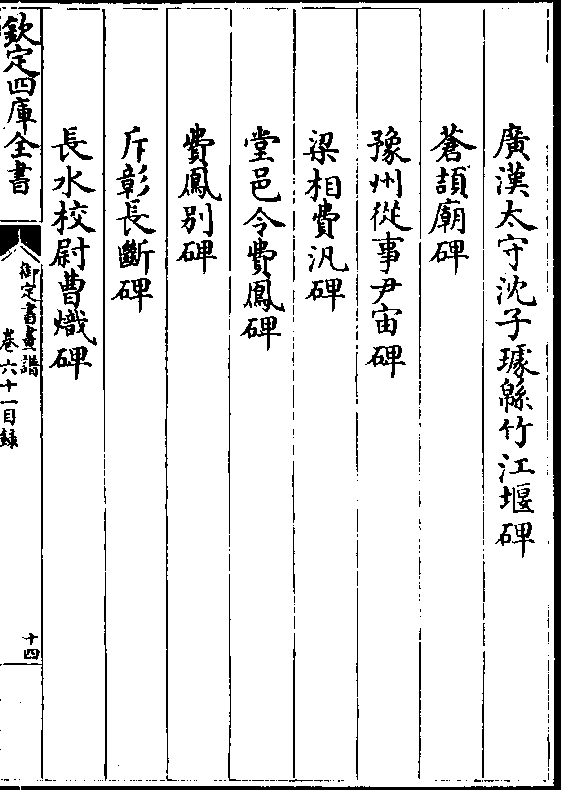 廣漢太守沈子璩緜竹江堰碑
蒼頡廟碑
豫州從事尹宙碑
梁相費汎碑
堂邑令費鳳碑
費鳳别碑
斥彰長斷碑
長水校尉曹熾碑
欽定四庫全書
御定書畫譜
卷六十一目錄
十四